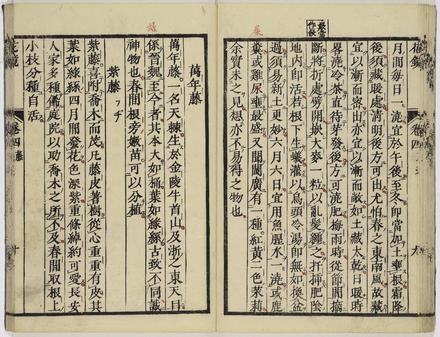 月間每日一澆宜於午後至冬卽當加土壅根霜降
後須藏暖處淸明後方可出尤怕春之東南風故藏
宜以漸而密出亦宜以漸而敞如土藏太乾日暖時
畧澆冷茶直待芽發後方可澆肥梅雨時從節間摘
斷將折處劈開嵌大麥一粒以亂髮纏之扦插肥陰
地內卽活若根下生蟻灌以烏頭冷湯卽無如換盆
過須易新土更妙六月六日宜用魚腥水一澆或鹿
糞或雞尿壅最盛又聞閩廣有一種紅黃二色茉莉
余實未之見想亦不易得之物也
萬年藤
萬年藤一名天棘生於金陵牛首山及浙之東天目
係晉魏王今者其本大如桶葉如絲縧古致不同誠
神物也春間根旁嫩苗可以分植
紫藤 フヂ
紫藤喜附喬木而茂凡藤皮著樹從心重重有皮其
葉如綠絲四月間發花色深紫重條綽約可愛長安
人家多種飾庭院以助喬木之所不及春間取根上
小枝分種自活
花鏡
卷四 藤